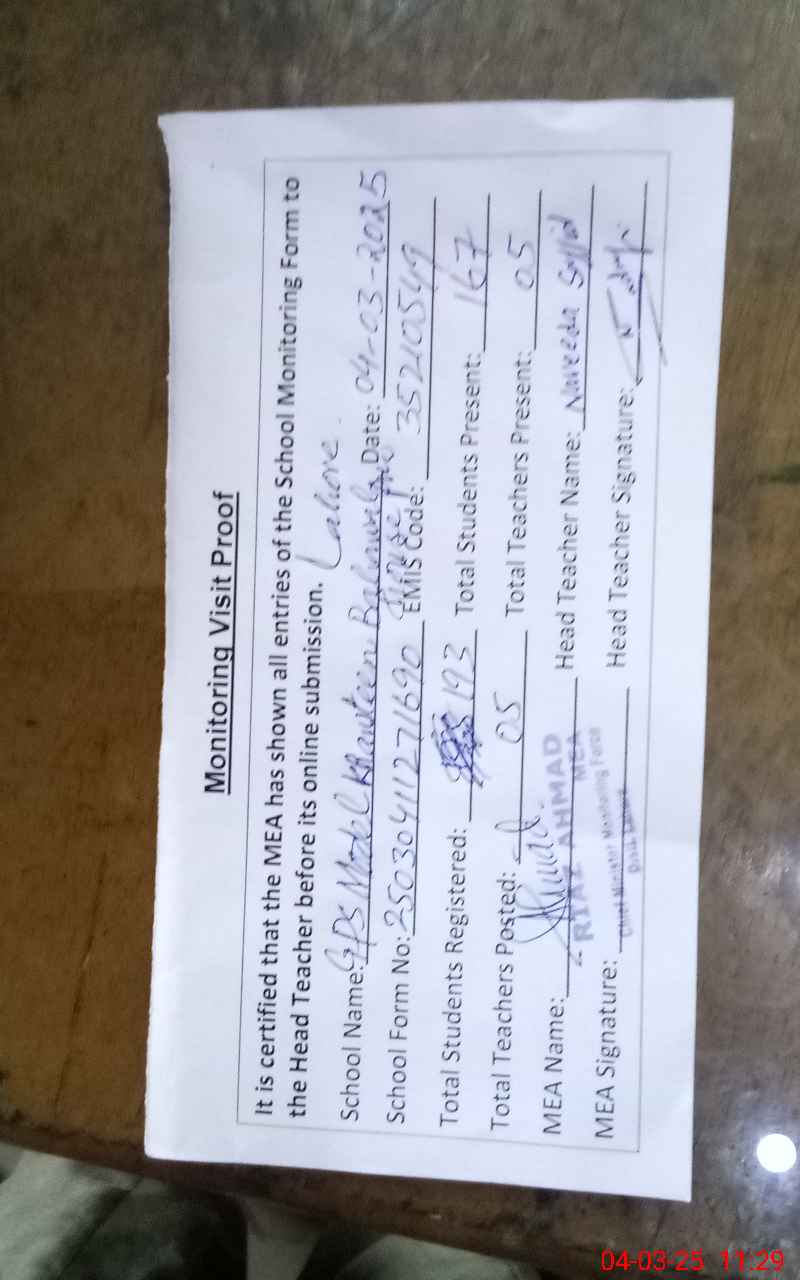 Monitoring Visit Proof
It is certified that the MEA has shown all entries of the School Monitoring Form to
the Head Teacher before its online submission. Lahore.
School Name: GPS Model Date: 04-03-2025
School Form No: 2503041127 1690 EMIS Code: 35210549
Total Students Registered: 193 Total Students Present: 167
Total Teachers Posted: 05 Total Teachers Present: 05
MEA Name: RIAZ AHMAD Head Teacher Name: Naveeda Sajjid
MEA
MEA Signature: Chief Minister Monitoring Force Head Teacher Signature:
Distt. Lahore
04-03-25 11:29